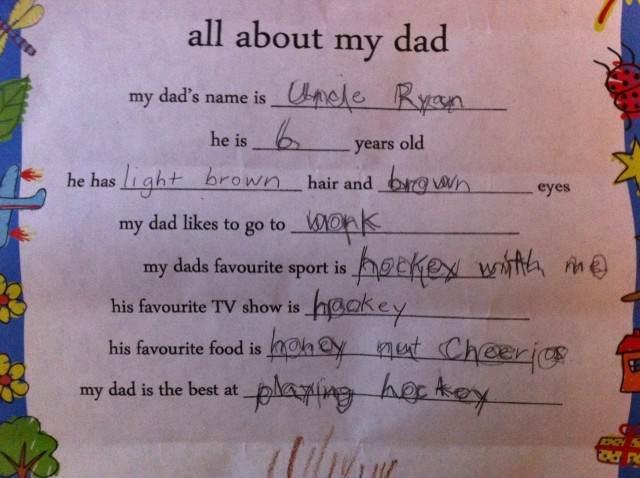 all about my dad
my dad's name is Uncle Ryan
he is 6 years old
he has light brown hair and brown eyes
my dad likes to go to work
my dads favourite sport is hockey with me
his favourite TV show is hockey
his favourite food is honey nut Cheerios
my dad is the best at playing hockey